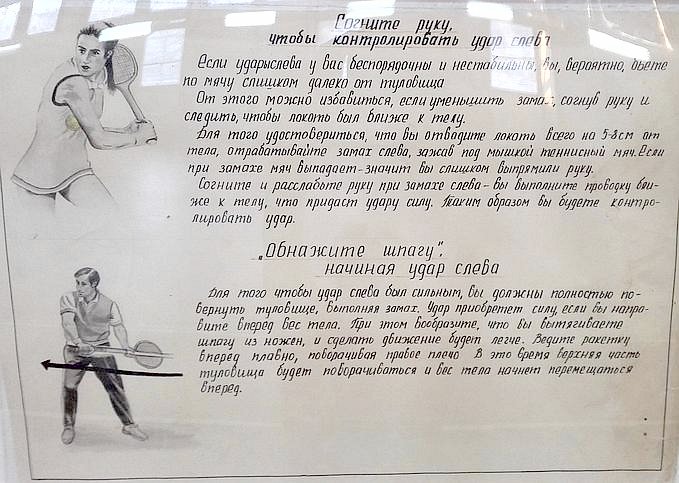 Согните руку,
чтобы контролировать удар слева
Если ударыслева у вас беспорядочны и нестабильны, вы, вероятно, бьете
по мячу слишком далеко от туловища
От этого можно избавиться, если уменьшить замах, согнув руку и
следить, чтобы локоть был ближе к телу.
Для того удостовериться, что вы отводите локоть всего на 5-8см от
тела, отрабатывайте замах слева, зажав под мышкой теннисный мяч. Если
при замахе мяч выпадает-значит вы слишком выпрямили руку.
Согните и расслабьте руку при замахе слева-вы выполните проводку бли-
же к телу, что придаст удару силу. Таким образом вы будете контро-
лировать удар.
„Обнажите шпагу",
начиная удар слева
Для того чтобы удар слева был сильным, вы должны полностью по-
вернуть туловище, выполняя замах. Удар приобретет силу, если вы напра-
вите вперед вес тела. При этом вообразите, что вы вытягиваете
шпагу из ножен, и сделать движение будет легче. Ведите ракетку
вперед плавно, поворачивая правое плечо В это время верхняя часть
туловища будет поворачиваться и вес тела начнет перемещаться
вперед.